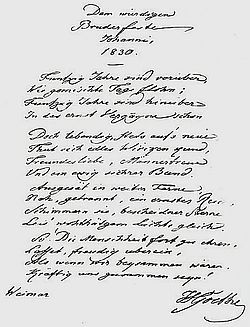 Dem würdigen
Bruderfeste
Johanni,
1830.
Funfzig Jahre sind vorüber
Wie gemischte Tage flohn;
Funfzig Jahre sind hinüber
In das ernst Vergangne schon
Doch lebendig, stets auf's neue
Thut sich edles Wirken kund,
Freundesliebe, Männertreue
Und ein ewig sichrer Bund.
Ausgesät in weiter Ferne,
Nah, getrennt, ein ernstes Reich,
Schimmern sie, bescheidner Sterne
Leis wohlthätgem Lichte gleich.
So! Die Menschheit fort zu ehren,
Lasset, freudig überein,
Als wenn wir beysammen wären,
Kräftig uns zusammen seyn!
Weimar JWGoethe